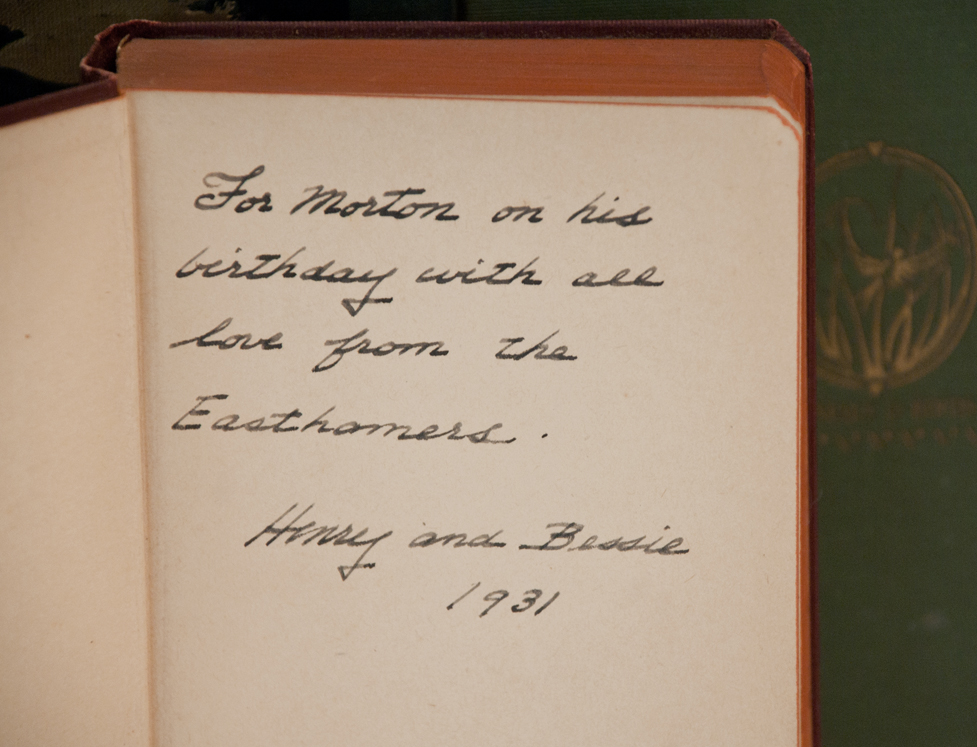 For Morton on his
birthday with all
love from the
Easthamers.
Henry and Bessie
1931